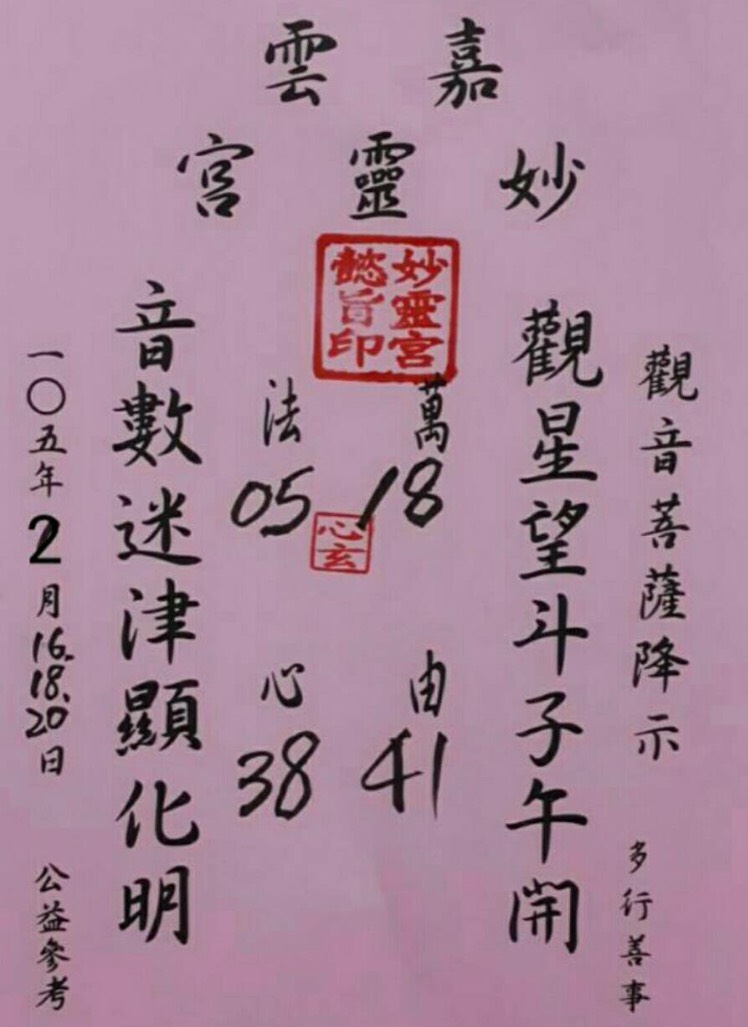 嘉雲
妙靈宮
妙靈宮
懿旨印
觀音菩薩降示
多行善事
觀星望斗子午開
萬法
18
05
心玄
由心
41
38
音數迷津顯化明
一〇五年2月16.18.20日
公益參考